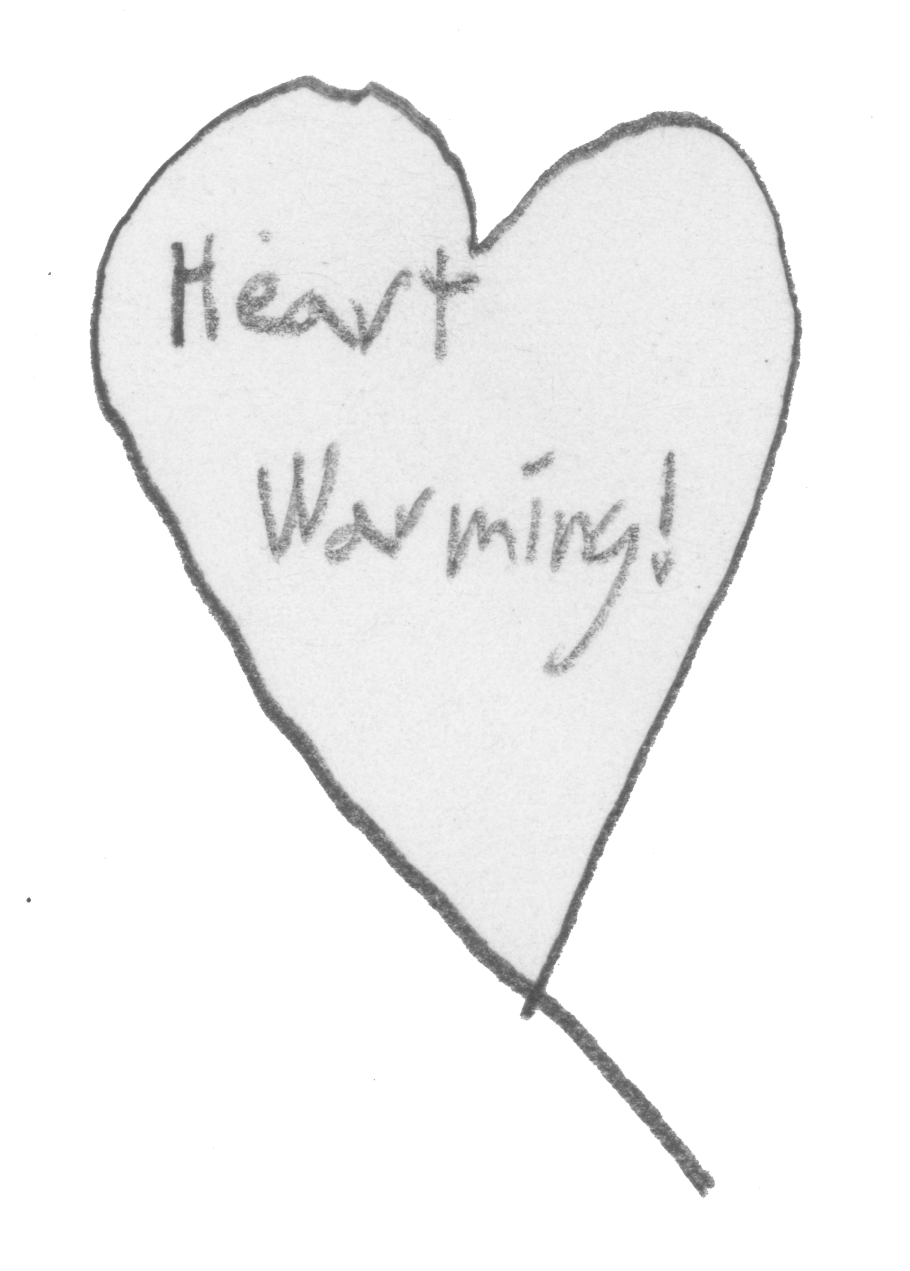 Heart
Warming!